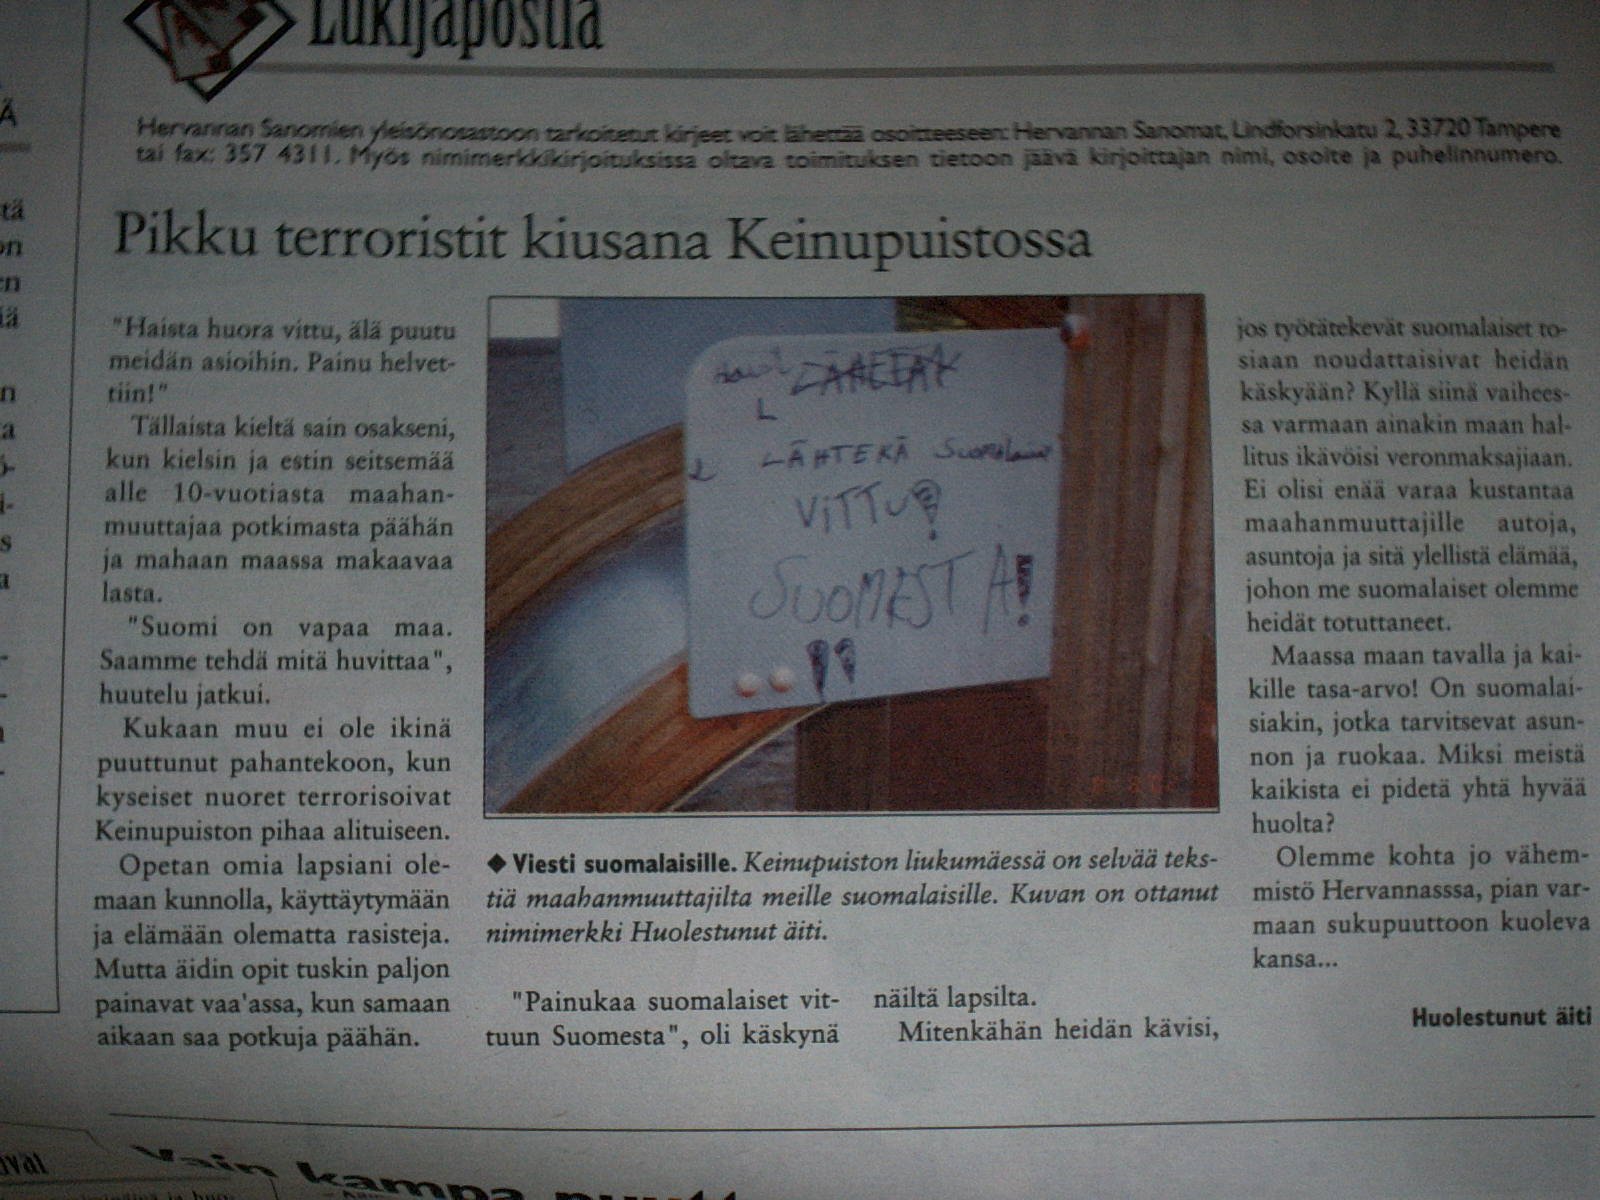 Lukijapostia
Hervannan Sanomien yleisönosastoon tarkoitetut kirjeet voit lähettää osoitteeseen: Hervannan Sanomat, Lindforsinkatu 2, 33720 Tampere
tai fax: 357 4311. Myös nimimerkkikirjoituksissa oltava toimituksen tietoon jäävä kirjoittajan nimi, osoite ja puhelinnumero.
Pikku terroristit kiusana Keinupuistossa
"Haista huora vittu, älä puutu
meidän asioihin. Painu helvet-
tiin!"
Tällaista kieltä sain osakseni,
kun kielsin ja estin seitsemää
alle 10-vuotiasta maahan-
muuttajaa potkimasta päähän
ja mahaan maassa makaavaa
lasta.
"Suomi on vapaa maa.
Saamme tehdä mitä huvittaa",
huutelu jatkui.
Kukaan muu ei ole ikinä
puuttunut pahantekoon, kun
kyseiset nuoret terrorisoivat
Keinupuiston pihaa alituiseen.
Opetan omia lapsiani ole-
maan kunnolla, käyttäytymään
ja elämään olematta rasisteja.
Mutta äidin opit tuskin paljon
painavat vaa'assa, kun samaan
aikaan saa potkuja päähän.
LÄHTEKÄ SUOMALAISET
VITTU!
SUOMESTA!
!!
◆ Viesti suomalaisille. Keinupuiston liukumäessä on selvää teks-
tiä maahanmuuttajilta meille suomalaisille. Kuvan on ottanut
nimimerkki Huolestunut äiti.
"Painukaa suomalaiset vit-
tuun Suomesta", oli käskynä
näiltä lapsilta.
Mitenkähän heidän kävisi,
jos työtätekevät suomalaiset to-
siaan noudattaisivat heidän
käskyään? Kyllä siinä vaihees-
sa varmaan ainakin maan hal-
litus ikävöisi veronmaksajiaan.
Ei olisi enää varaa kustantaa
maahanmuuttajille autoja,
asuntoja ja sitä ylellistä elämää,
johon me suomalaiset olemme
heidät totuttaneet.
Maassa maan tavalla ja kai-
kille tasa-arvo! On suomalai-
siakin, jotka tarvitsevat asun-
non ja ruokaa. Miksi meistä
kaikista ei pidetä yhtä hyvää
huolta?
Olemme kohta jo vähem-
mistö Hervannasssa, pian var-
maan sukupuuttoon kuoleva
kansa...
Huolestunut äiti
Vain kampa